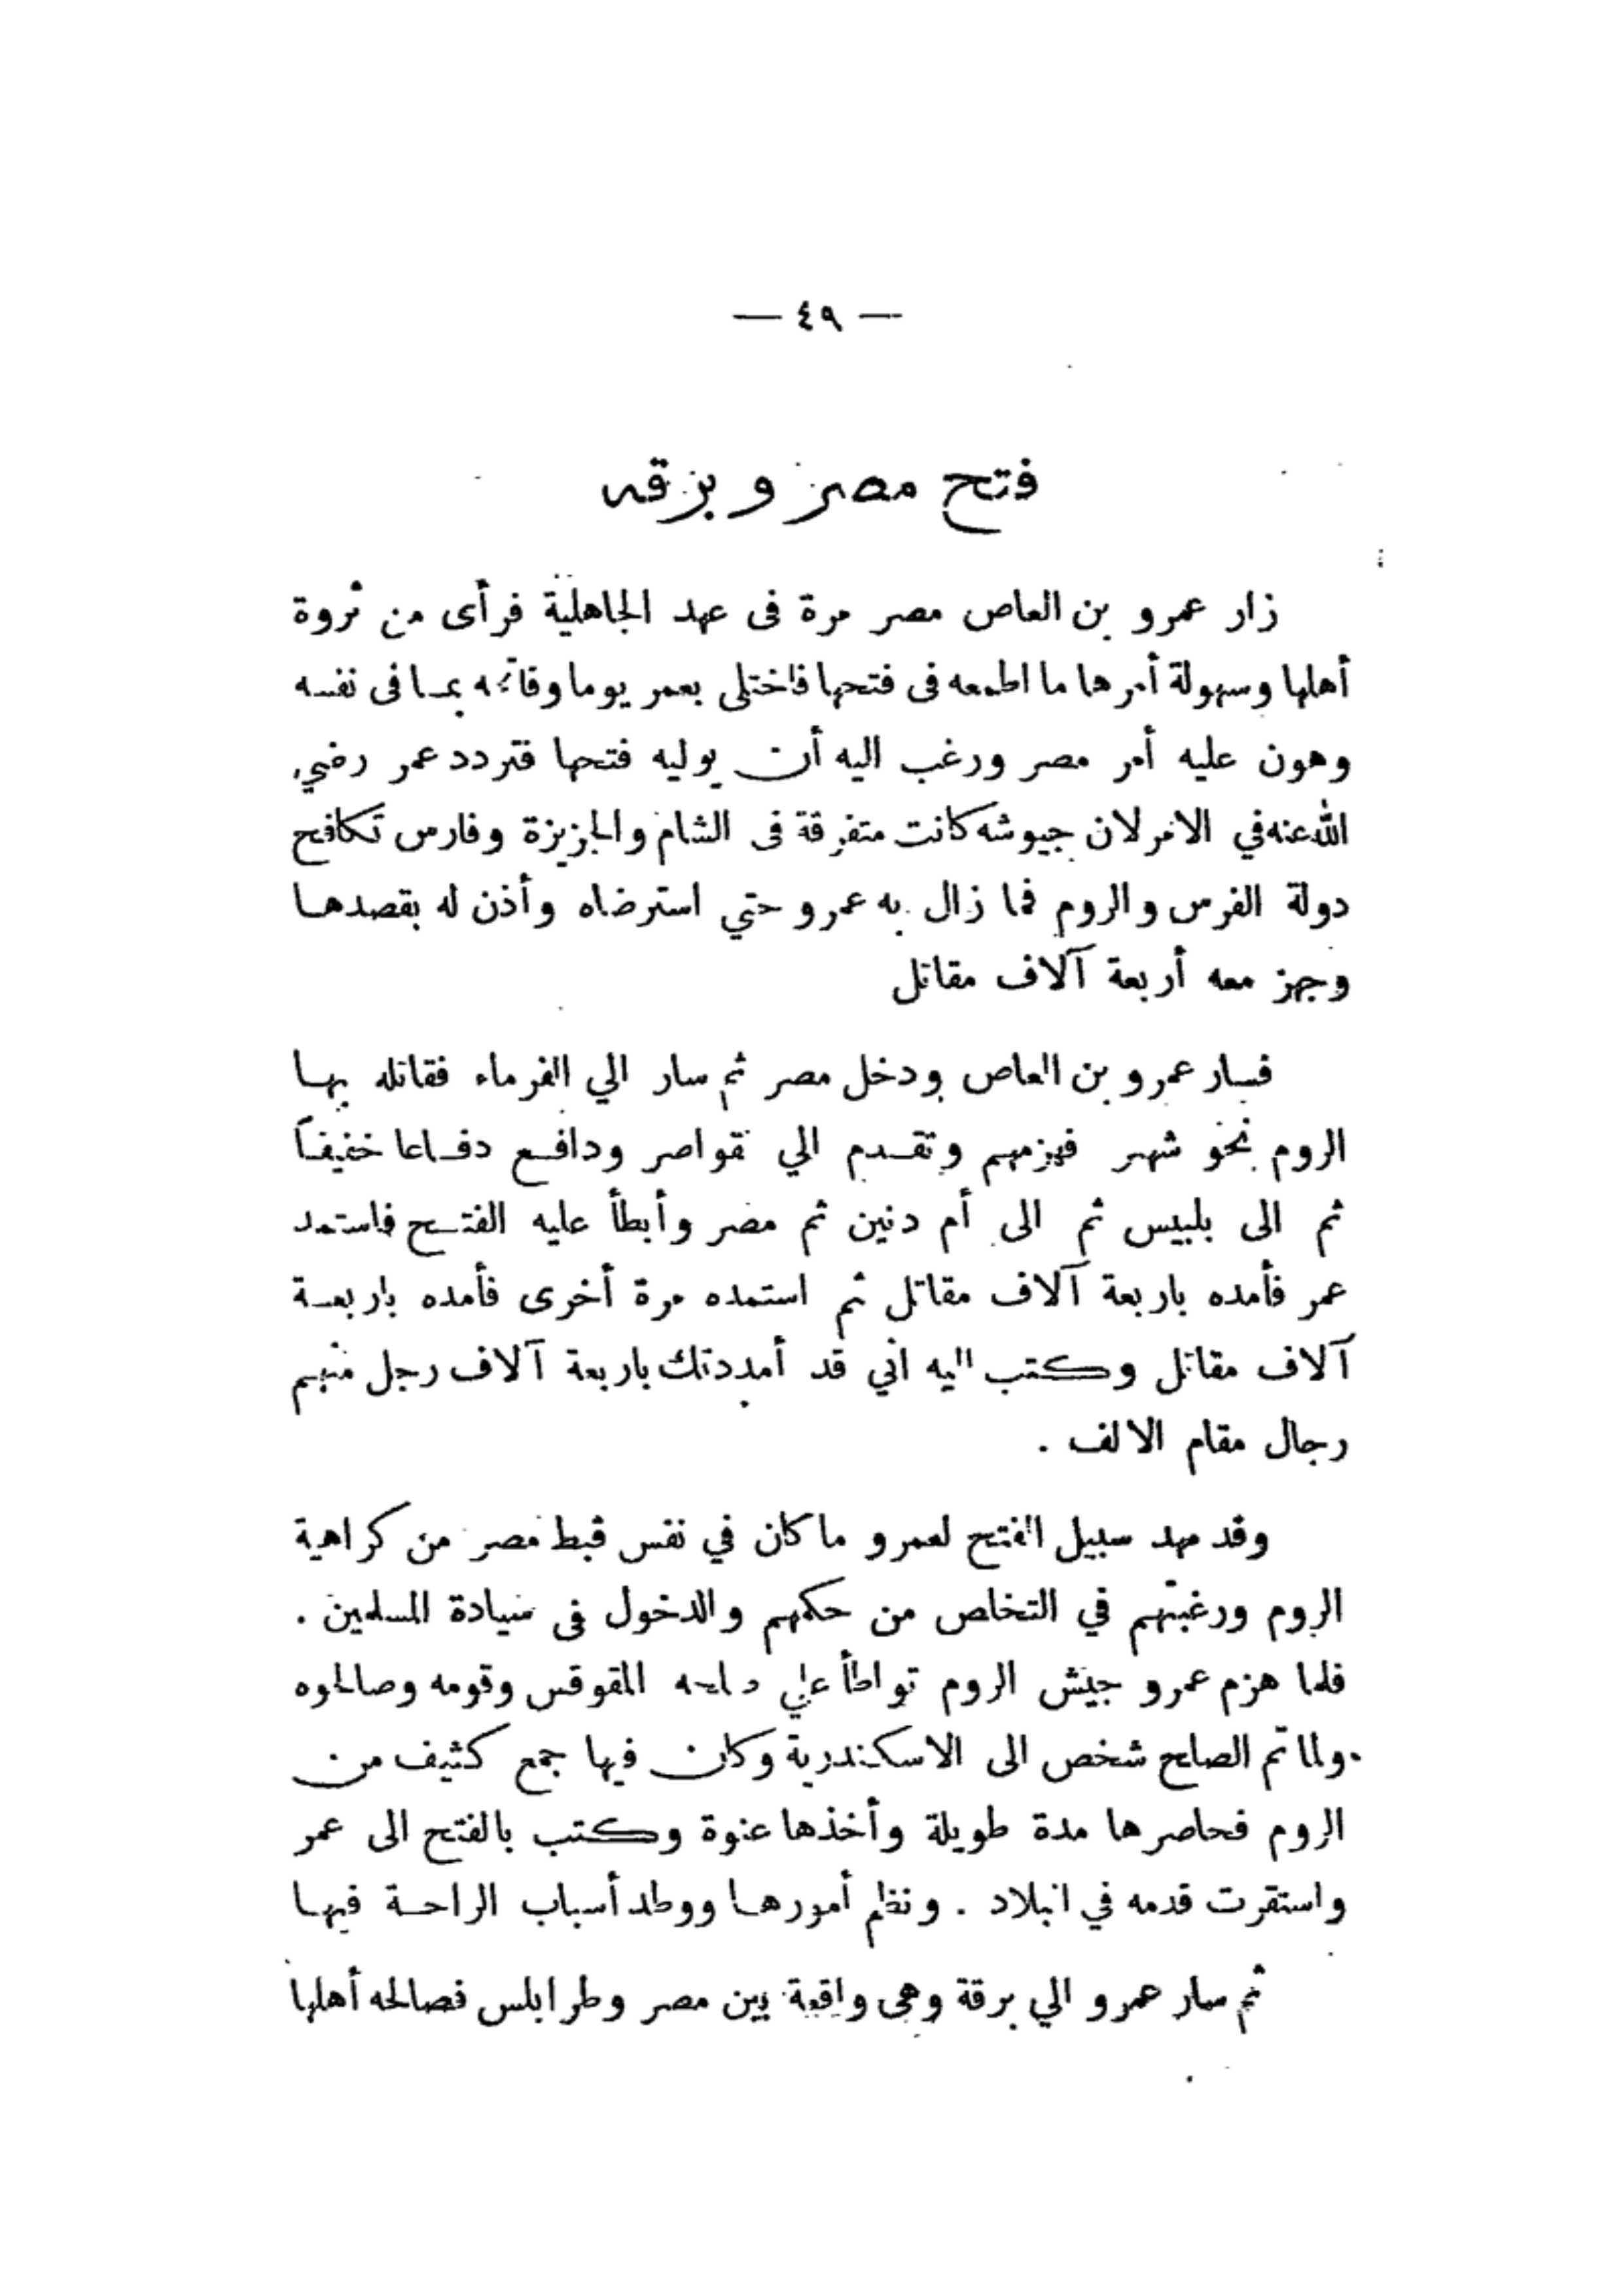 — ٤٩ —
فتح مصر وبرقه
زار عمرو بن العاص مصر مرة فى عهد الجاهلية فرأى من ثروة
أهلها وسهولة أمرها ما اطمعه فى فتحها فاختلى بعمر يوما وفاتحه بمـا فى نفسه
وهون عليه أمر مصر ورغب اليه أن يوليه فتحها فتردد عمر رضي
الله عنه في الامر لان جيوشه كانت متفرقة فى الشام والجزيرة وفارس تكافح
دولة الفرس والروم فما زال به عمرو حتي استرضاه وأذن له بقصدهـا
وجهز معه أربعة آلاف مقاتل
فسار عمرو بن العاص ودخل مصر ثم سار الي الفرماء فقاتله بهـا
الروم نحو شهر فهزمهم وتقـدم الي تقواصر ودافـع دفـاعا خفيفـاً
ثم الى بلبيس ثم الى أم دنين ثم مصر وأبطأ عليه الفتـح فاستمد
عمر فأمده باربعة آلاف مقاتل ثم استمده مرة أخرى فأمده باربعـة
آلاف مقاتل وكتب اليه اني قد أمددتك باربعة آلاف رجل منهم
رجال مقام الالف .
وقد مهد سبيل الفتح لعمرو ما كان في نفس قبط مصر من كراهية
الروم ورغبتهم في التخلص من حكمهم والدخول فى سيادة المسلمين .
فلما هزم عمرو جيش الروم تواطأ علي صلحه المقوقس وقومه وصالحوه
ولما تم الصلح شخص الى الاسكندرية وكان فيها جمع كثيف من
الروم فحاصرها مدة طويلة وأخذها عنوة وكتب بالفتح الى عمر
واستقرت قدمه في البلاد . ونظم أمورهـا ووطد أسباب الراحـة فيهـا
ثم سار عمرو الي برقة وهى واقعة بين مصر وطرابلس فصالحه أهلها